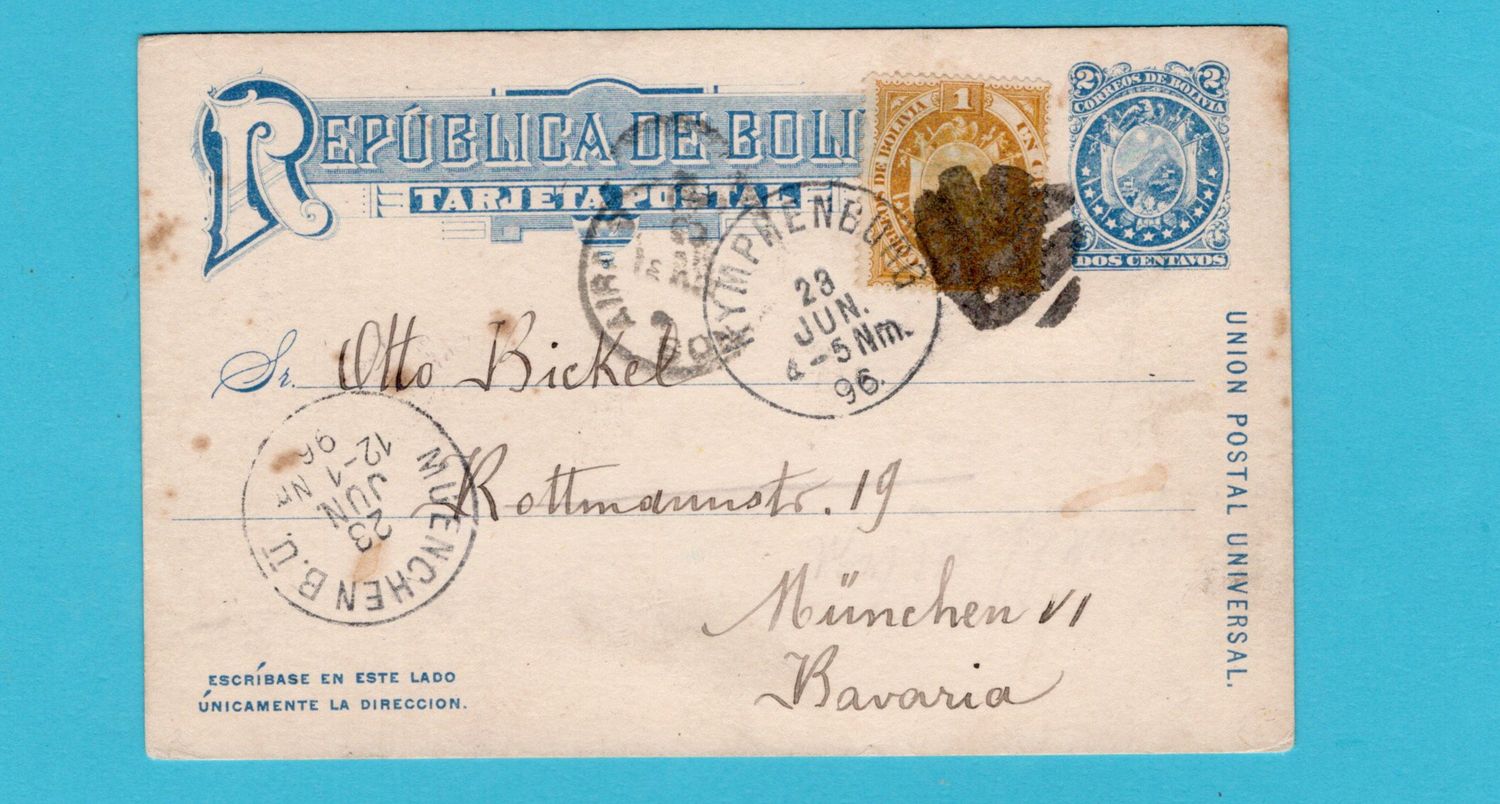 REPÚBLICA DE BOLI
TARJETA POSTAL
1
DE BOLIVIA
UN
2 2
CORREOS DE BOLIVIA
DOS CENTAVOS
NYMPHENBURG
23
JUN.
4-5 Nm.
96.
Sr. Otto Bickel
Rottmannstr. 19
München VI
Bavaria
MUENCHEN B.Ü.
23
JUN
1
12-1 Nm
96
ESCRÍBASE EN ESTE LADO
ÚNICAMENTE LA DIRECCION.
UNION POSTAL UNIVERSAL.